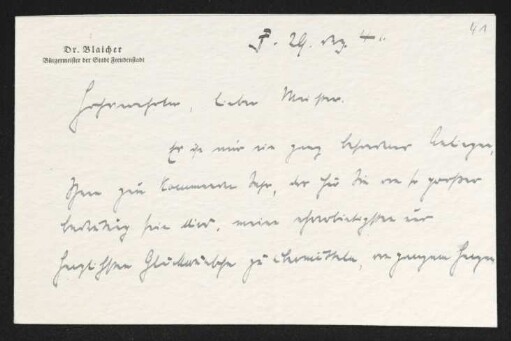 41
Dr. Blaicher
Bürgermeister der Stadt Freudenstadt
F. 29. Dez. 41.
Hochverehrter, lieber Meister.
Es ist mir ein ganz besonderes Anliegen,
Ihnen zum kommenden Jahr, das für Sie von so großer
Bedeutung sein wird, meine ehrerbietigsten und
herzlichsten Glückwünsche zu übermitteln, von ganzem Herzen